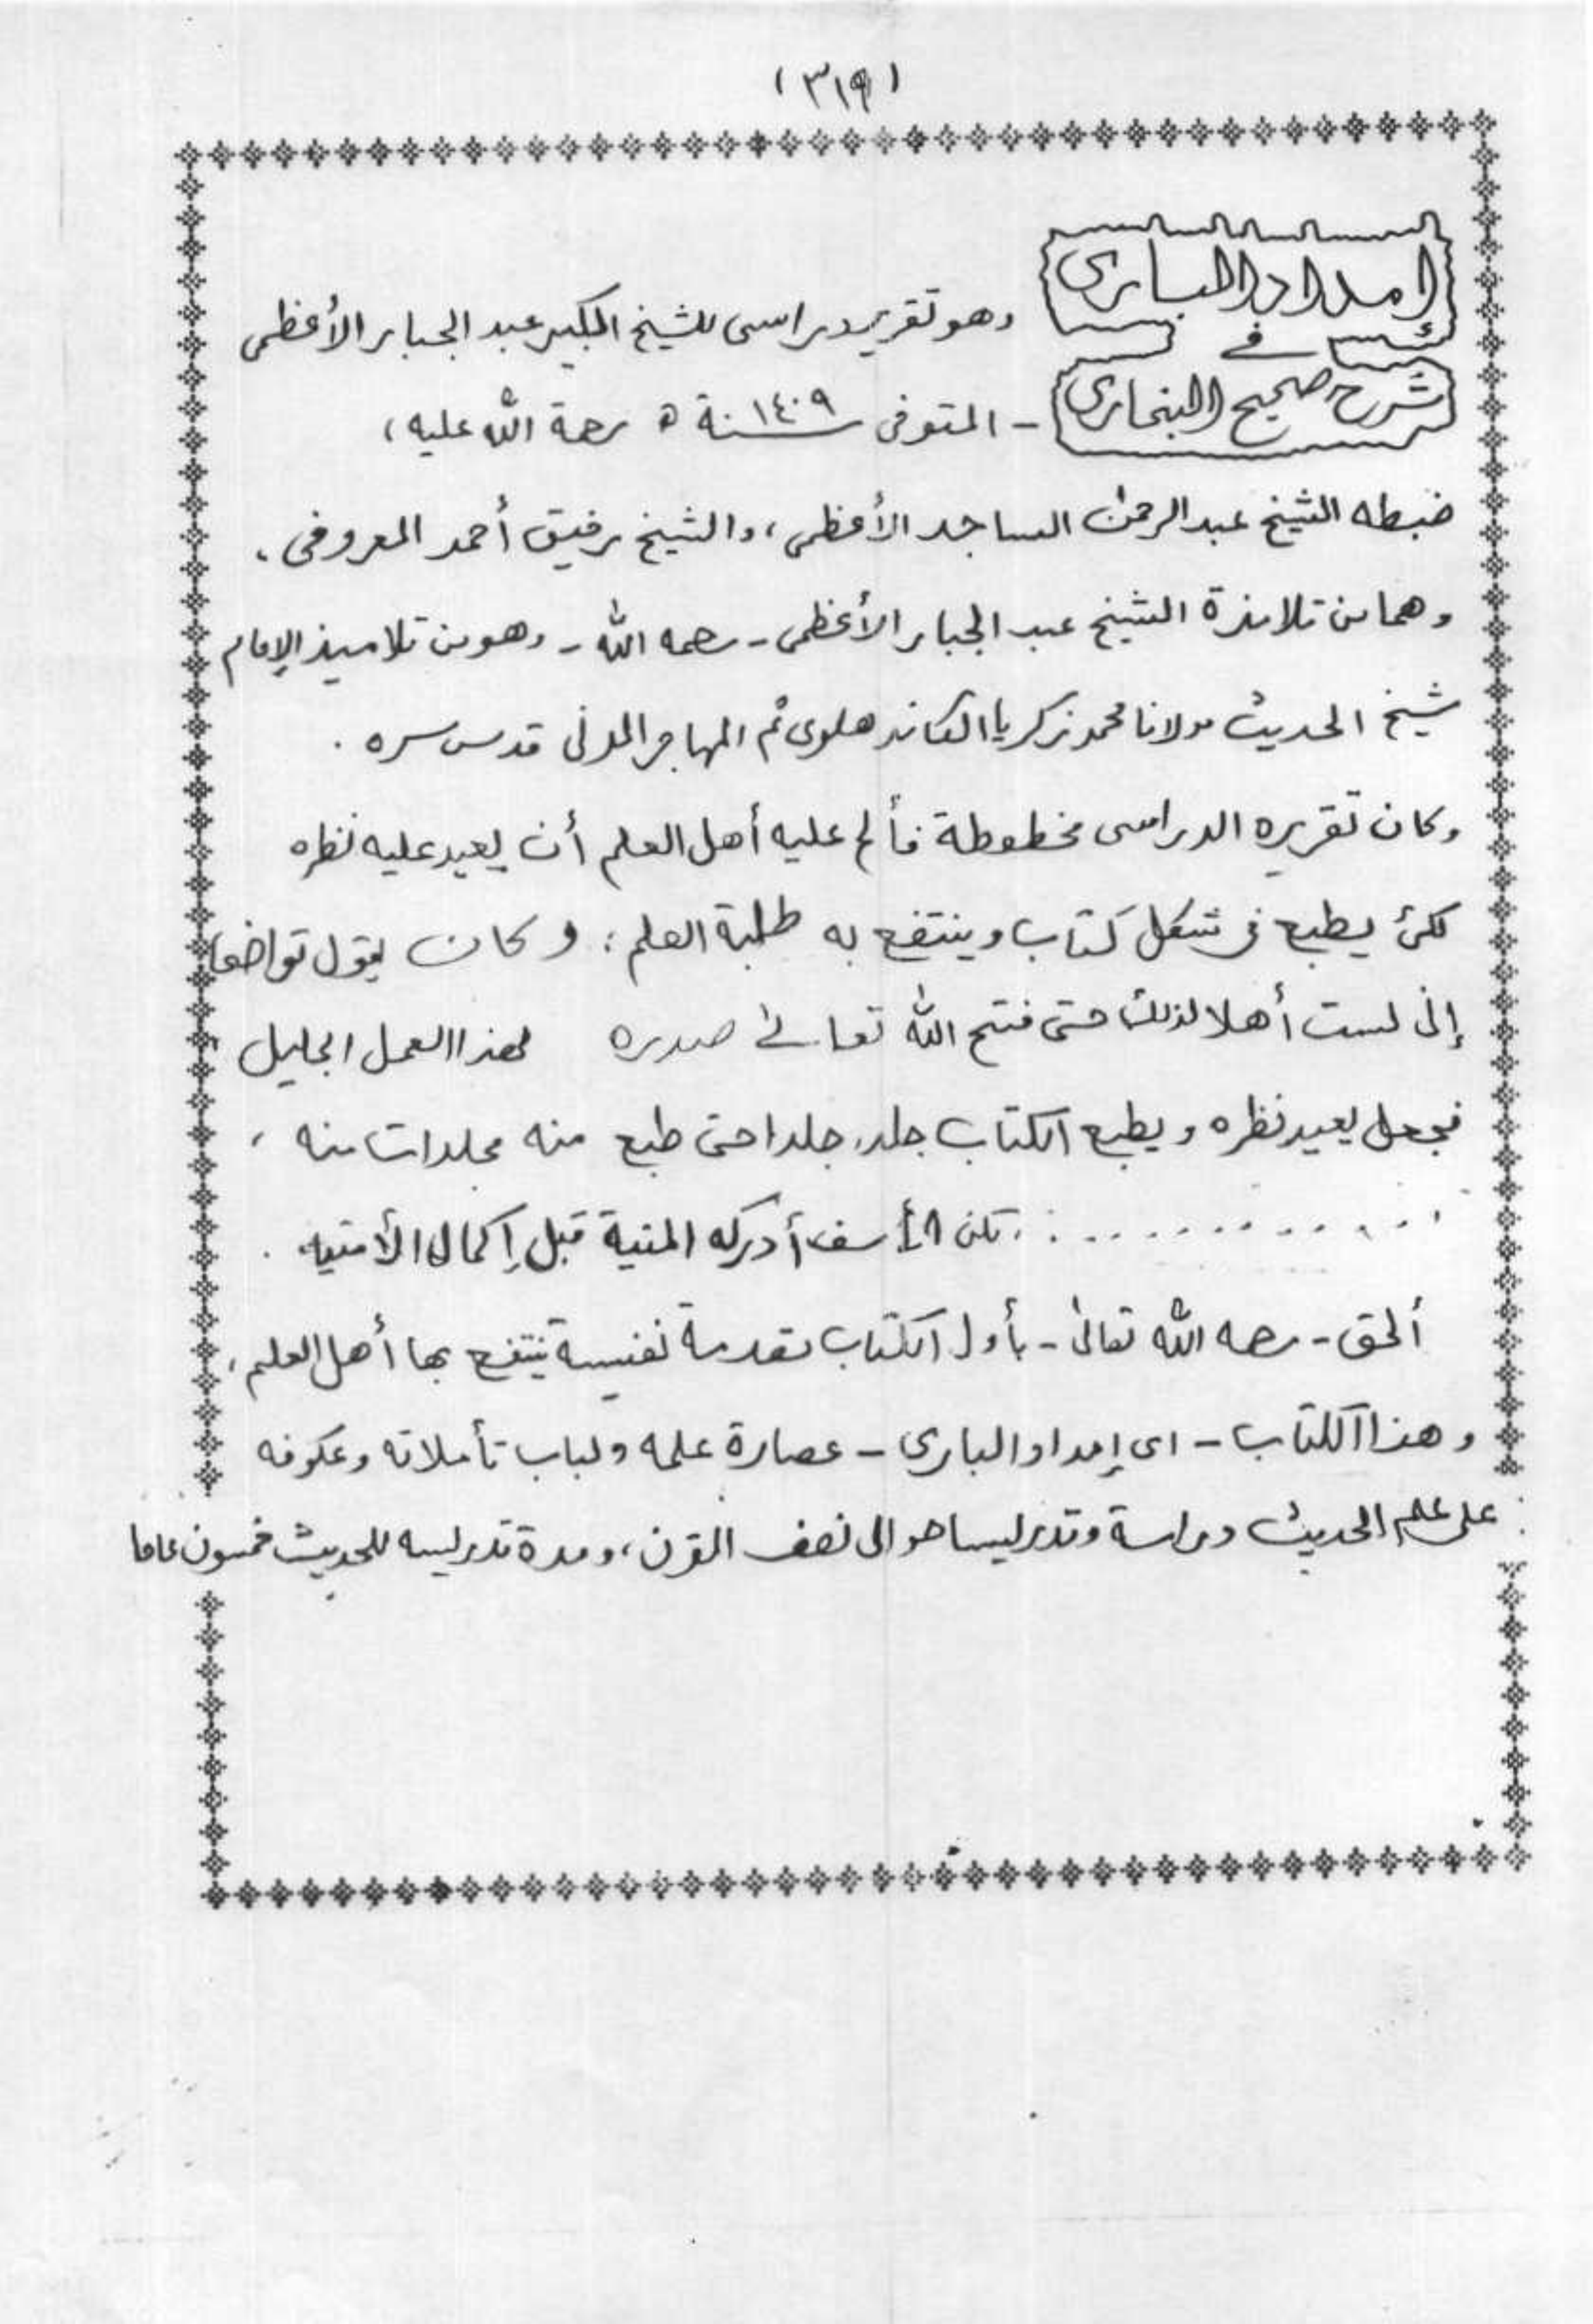 (٣١٩)
امداد الباري
في
شرح صحيح البخاري
وهو تقرير دراسى للشيخ الكبير عبد الجبار الأعظمى
- المتوفى سنة ١٤٠٩ ه رحمة الله عليه،
ضبطه الشيخ عبد الرحمن الساجد الأعظمى، والشيخ رفيق أحمد المعروفى.
وهما من تلامذة الشيخ عبد الجبار الأعظمى - رحمه الله - وهو من تلاميذ الإمام
شيخ الحديث مولانا محمد زكريا الكاندهلوى ثم المهاجر المدنى قدس سره.
وكان تقريره الدراسى مخطوطة فألح عليه أهل العلم أن يعيد عليه نظره
لكى يطبع فى شكل كتاب وينتفع به طلبة العلم؛ وكان يقول تواضعا
إنى لست أهلا لذلك حتى فتح الله تعالى صدره لهذا العمل الجليل
فجعل يعيد نظره ويطبع الكتاب جلدا جلدا حتى طبع منه مجلدات منه،
لكن الأسف أدركه المنية قبل إكمال الأمنية.
ألحق - رحمه الله تعالى - بأول الكتاب مقدمة نفيسة ينتفع بها أهل العلم،
وهذا الكتاب - اى إمداد البارى - عصارة علمه ولباب تأملاته وعكوفه
على علم الحديث دراسة وتدريسا حوالى نصف القرن، ومدة تدريسه للحديث خمسون عاما